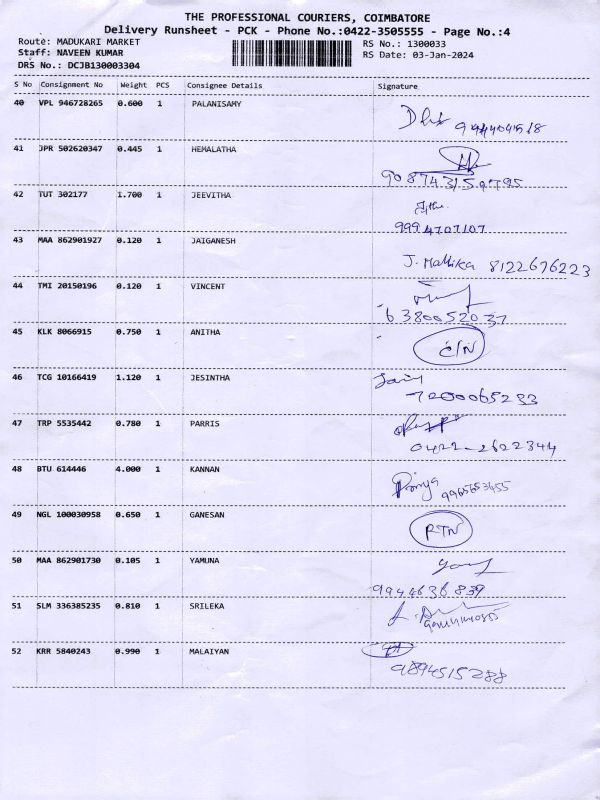 THE PROFESSIONAL COURIERS, COIMBATORE
Delivery Runsheet - PCK - Phone No.:0422-3505555 - Page No.:4
Route: MADUKARI MARKET RS No.: 1300033
Staff: NAVEEN KUMAR RS Date: 03-Jan-2024
DRS No.: DCJB130003304
S No Consignment No Weight PCS Consignee Details Signature
40 VPL 946728265 0.600 1 PALANISAMY
41 JPR 502620347 0.445 1 HEMALATHA
42 TUT 302177 1.700 1 JEEVITHA
9994707107
43 MAA 862901927 0.120 1 JAIGANESH
J. Mallika 8122676223
44 TMI 20150196 0.120 1 VINCENT
6380052037
45 KLK 8066915 0.750 1 ANITHA
C/N
46 TCG 10166419 1.120 1 JESINTHA
7200065283
47 TRP 5535442 0.780 1 PARRIS
0422-2622344
48 BTU 614446 4.000 1 KANNAN
Priya 9965653455
49 NGL 100030958 0.650 1 GANESAN
RTN
50 MAA 862901730 0.105 1 YAMUNA
9944636839
51 SLM 336385235 0.810 1 SRILEKA
52 KRR 5840243 0.990 1 MALAIYAN
9894515288